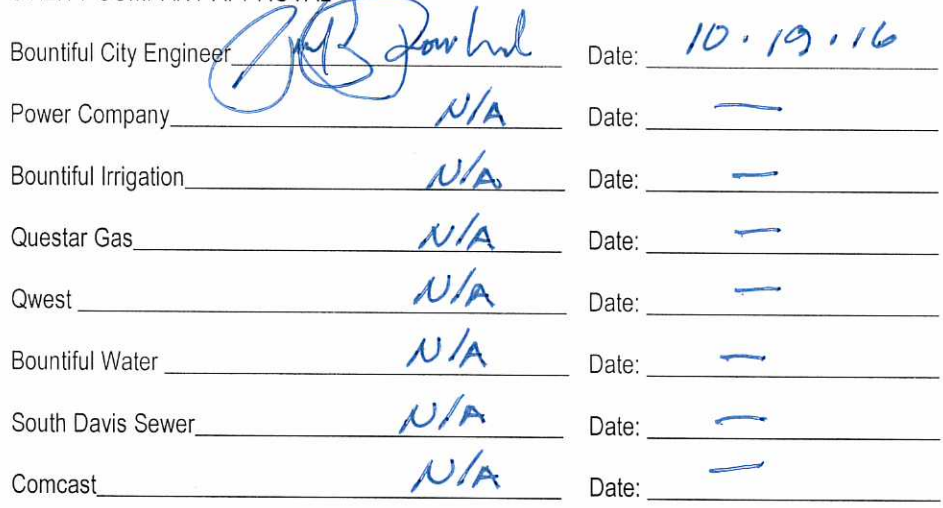 COMPANY APPROVAL
Bountiful City Engineer Date: 10.19.16
Power Company N/A Date: —
Bountiful Irrigation N/A Date: —
Questar Gas N/A Date: —
Qwest N/A Date: —
Bountiful Water N/A Date: —
South Davis Sewer N/A Date: —
Comcast N/A Date: —